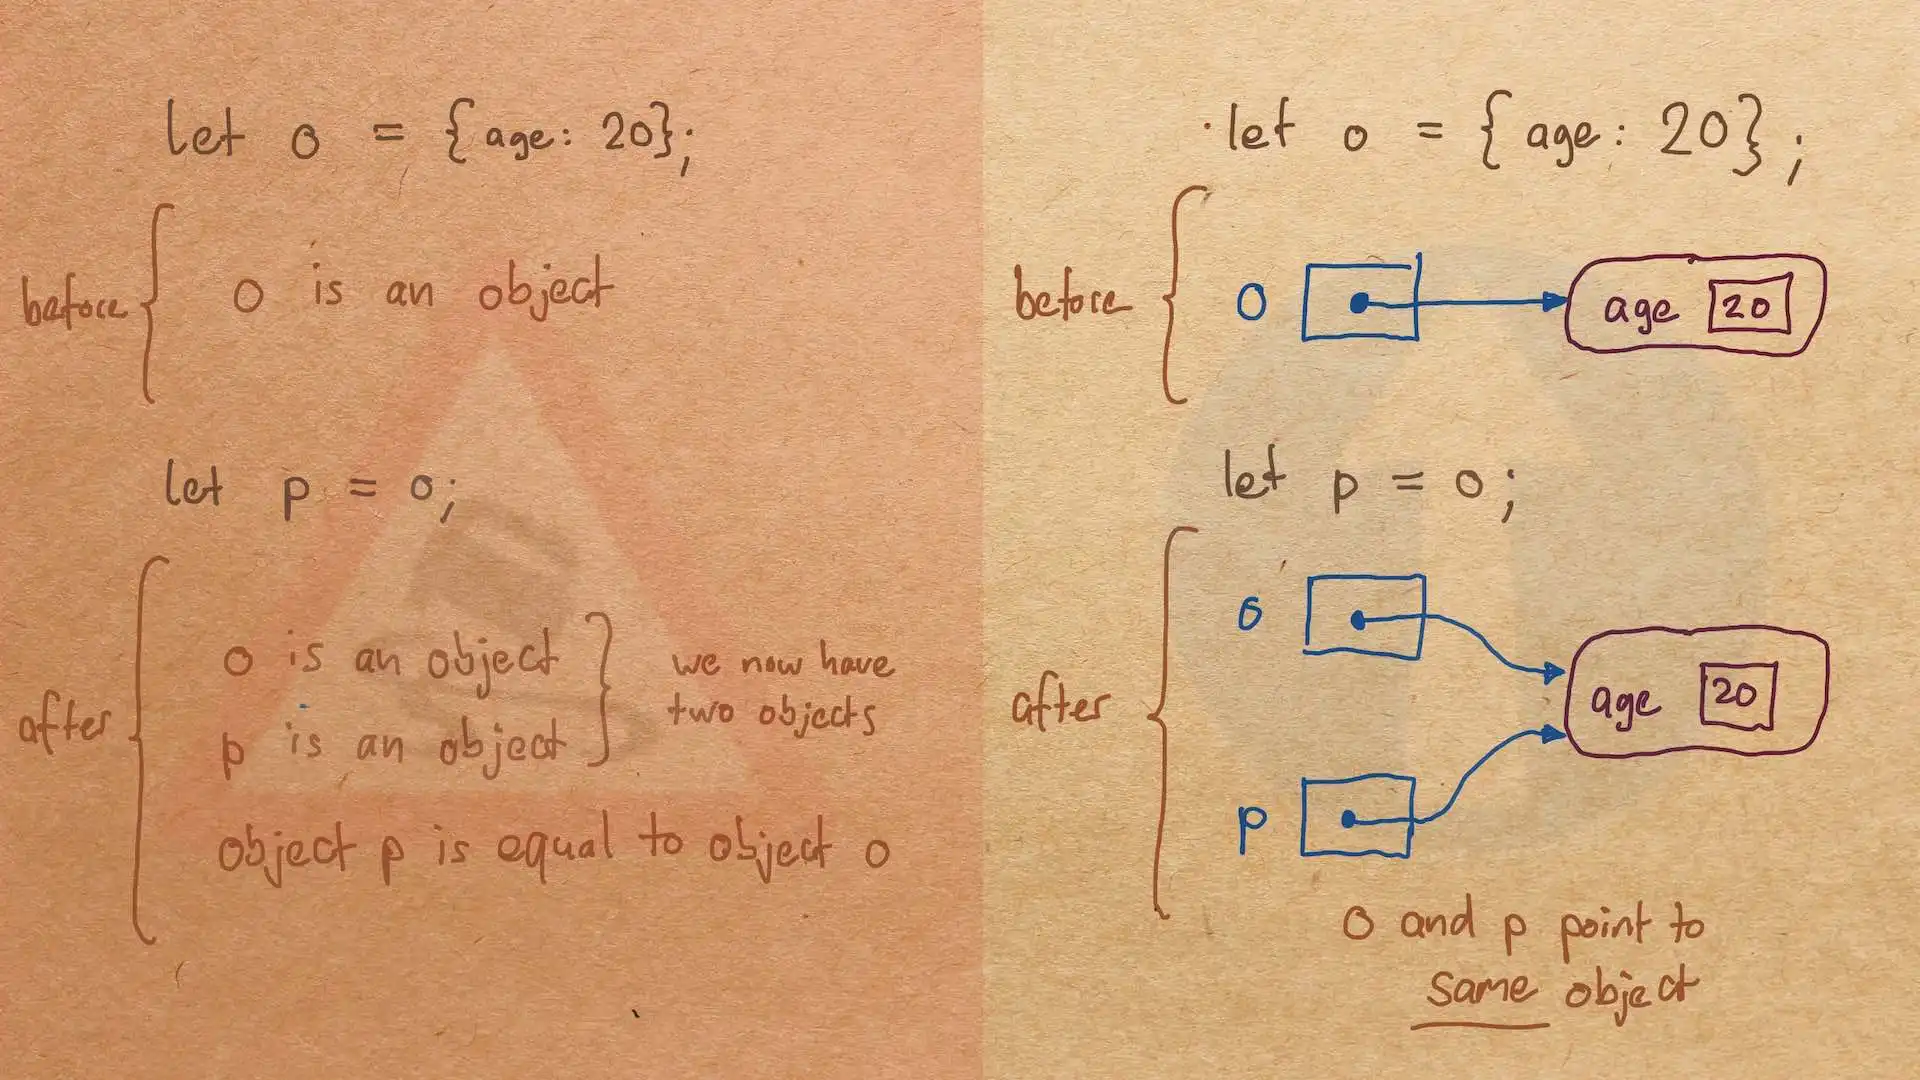 let o = {age: 20};
before
o is an object
let p = o;
after
o is an object
p is an object
we now have
two objects
object p is equal to object o
let o = {age: 20};
before
o
age 20
let p = o;
after
o
age 20
p
o and p point to
same object